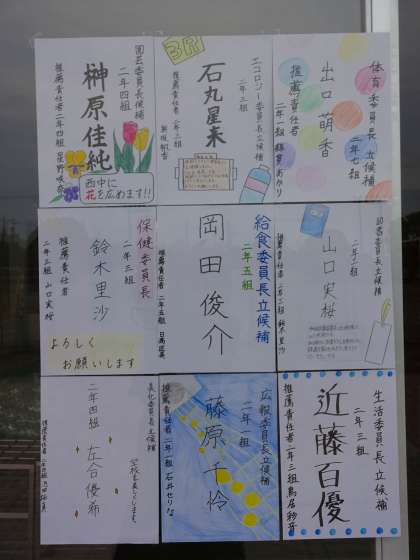 園芸委員長候補
二年四組
榊原佳純
推薦責任者 二年四組 星野咲奈
西中に
花を広めます!!
3R
エコロジー委員長立候補
二年三組
石丸星来
推薦責任者 二年三組
体育委員長 立候補
二年七組
出口 萌香
推薦責任者
二年一組
保健委員長
二年三組
鈴木里沙
推薦責任者
二年三組 山口実桜
よろしく
お願いします
給食委員長立候補
二年五組
岡田俊介
推薦責任者 二年五組
図書委員長立候補
二年三組
山口実桜
推薦責任者 二年三組 鈴木里沙
美化委員長立候補
学校を美しくします。
二年四組 左合優希
推薦責任者
広報委員長立候補
二年一組
藤原千怜
推薦責任者 二年一組 石井せり
生活委員長 立候補
二年三組
近藤百優
推薦責任者 二年三組 鳥居紗音